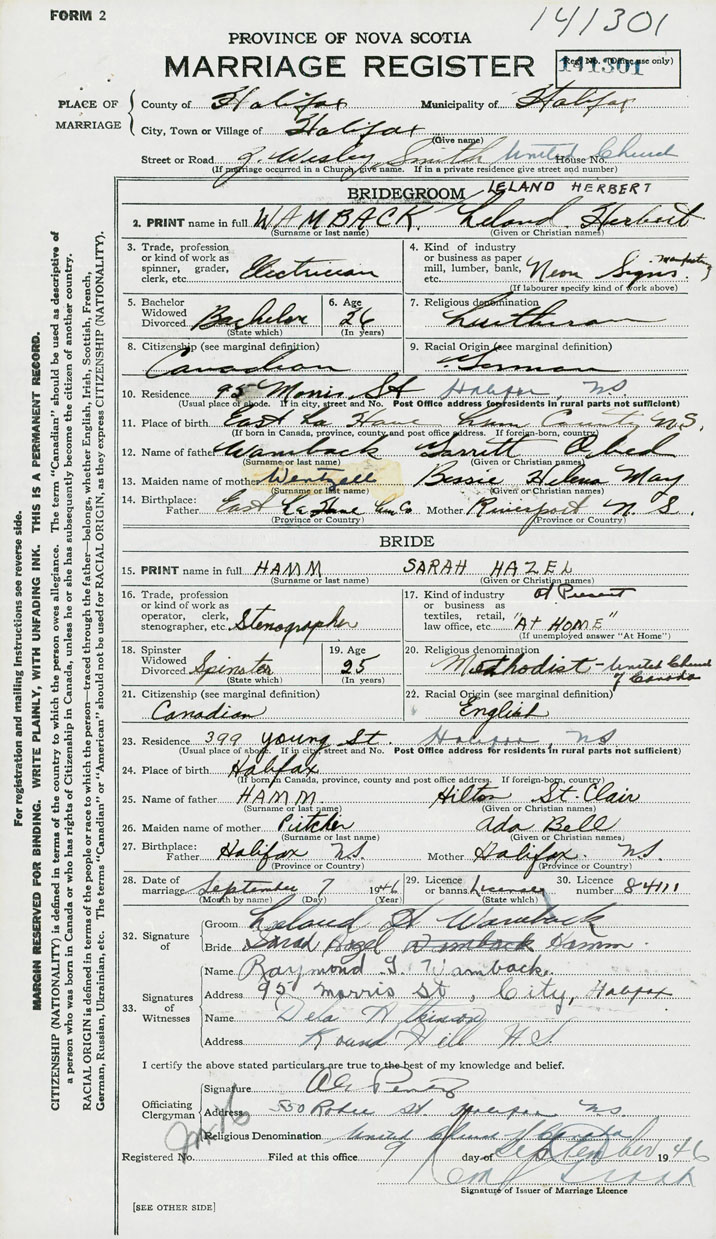 FORM 2
141301
PROVINCE OF NOVA SCOTIA
MARRIAGE REGISTER
Reg. No. (Office use only)
141301
PLACE OF MARRIAGE
County of Halifax Municipality of Halifax
City, Town or Village of Halifax
(Give name)
Street or Road J. Wesley Smith United Church House No.
(If marriage occurred in a Church give name. If in a private residence give street and number)
BRIDEGROOM LELAND HERBERT
2. PRINT name in full WAMBACK, Leland Herbert
(Surname or last name) (Given or Christian names)
3. Trade, profession or kind of work as spinner, grader, clerk, etc. Electrician
4. Kind of industry or business as paper mill, lumber, bank, etc. Neon Signs
(If labourer specify kind of work above)
5. Bachelor Widowed Divorced Bachelor
(State which)
6. Age 26
(In years)
7. Religious denomination Lutheran
8. Citizenship (see marginal definition) Canadian
9. Racial Origin (see marginal definition) German
10. Residence 95 Morris St Halifax, NS
(Usual place of abode. If in city, street and No. Post Office address for residents in rural parts not sufficient)
11. Place of birth East La Have Lun County, N.S.
(If born in Canada, province, county and post office address. If foreign-born, country)
12. Name of father Wamback Garritt Obed
(Surname or last name) (Given or Christian names)
13. Maiden name of mother Wentzell Bessie Helena May
(Surname or last name) (Given or Christian names)
14. Birthplace: Father East La Have Lun Co Mother Riverport N.S.
(Province or Country) (Province or Country)
BRIDE
15. PRINT name in full HAMM SARAH HAZEL
(Surname or last name) (Given or Christian names)
16. Trade, profession or kind of work as operator, clerk, stenographer, etc. Stenographer
17. Kind of industry or business as textiles, retail, law office, etc. At Present "AT HOME"
(If unemployed answer "At Home")
18. Spinster Widowed Divorced Spinster
(State which)
19. Age 25
(In years)
20. Religious denomination Methodist - United Church of Canada
21. Citizenship (see marginal definition) Canadian
22. Racial Origin (see marginal definition) English
23. Residence 399 Young St. Halifax, NS
(Usual place of abode. If in city, street and No. Post Office address for residents in rural parts not sufficient)
24. Place of birth Halifax
(If born in Canada, province, county and post office address. If foreign-born, country)
25. Name of father HAMM Hilton St. Clair
(Surname or last name) (Given or Christian names)
26. Maiden name of mother Ada Bell
(Surname or last name) (Given or Christian names)
27. Birthplace: Father Halifax N.S. Mother Halifax N.S.
(Province or Country) (Province or Country)
28. Date of marriage September 7 1946
(Month by name) (Day) (Year)
29. Licence or banns License
(State which)
30. Licence number 84111
32. Signature of
Groom Leland H Wamback
Bride Sarah Hazel Wamback Hamm.
33. Signatures of Witnesses
Name Raymond G. Wamback.
Address 95 Morris St, City, Halifax
Name
Address Round Hill N.S.
I certify the above stated particulars are true to the best of my knowledge and belief.
Officiating Clergyman
Signature
Address St Halifax NS
Religious Denomination United Church of Canada
Registered No. Filed at this office 9 day of September 1946
Signature of Issuer of Marriage Licence
[SEE OTHER SIDE]
For registration and mailing instructions see reverse side.
MARGIN RESERVED FOR BINDING. WRITE PLAINLY, WITH UNFADING INK. THIS IS A PERMANENT RECORD.
CITIZENSHIP (NATIONALITY) is defined in terms of the country to which the person owes allegiance. The term "Canadian" should be used as descriptive of
a person who was born in Canada or who has rights of Citizenship in Canada, unless he or she has subsequently become the citizen of another country.
RACIAL ORIGIN is defined in terms of the people or race to which the person—traced through the father—belongs, whether English, Irish, Scottish, French,
German, Russian, Ukrainian, etc. The terms "Canadian" or "American" should not be used for RACIAL ORIGIN, as they express CITIZENSHIP (NATIONALITY).